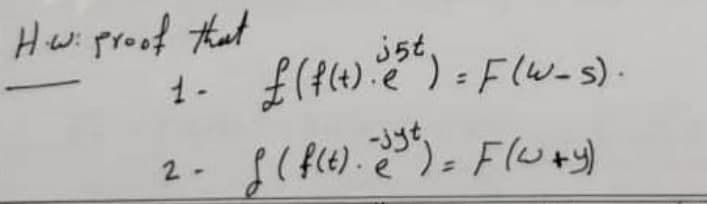 H.w: proof that
1- £(f(t).e^{j5t}) = F(w-s).
2- £(f(t).e^{-jyt}) = F(w+y)